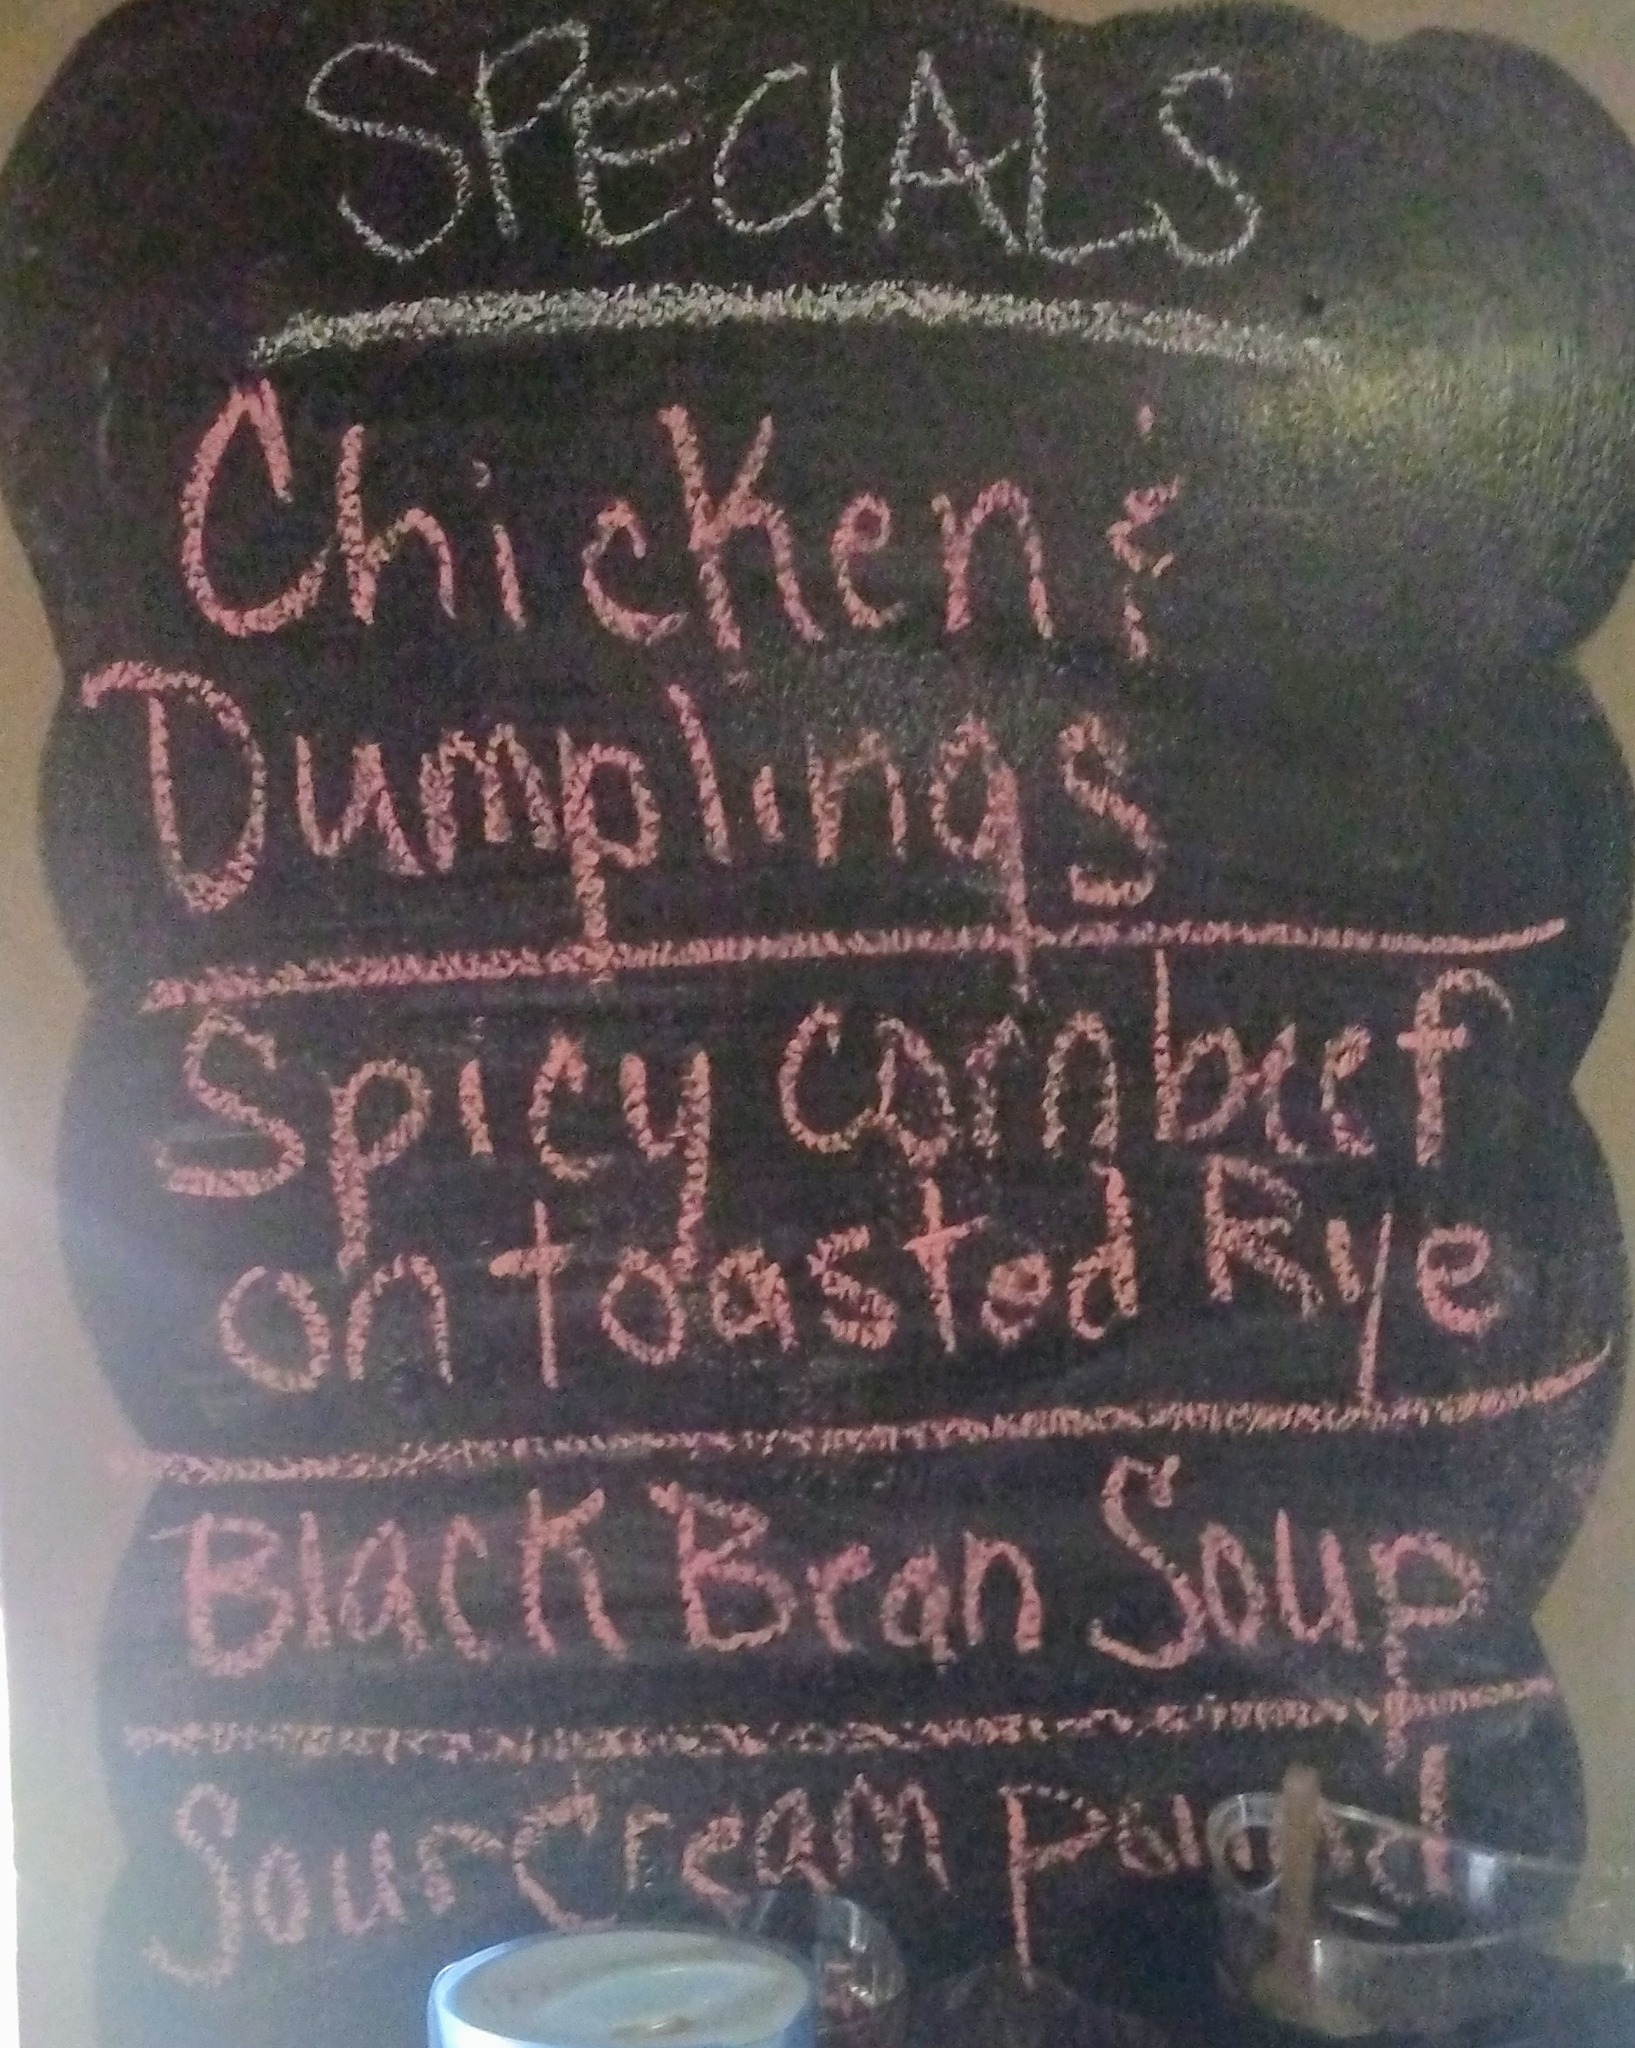 SPECIALS
Chicken &
Dumplings
Spicy Cornbeef
on toasted Rye
Black Bean Soup
Sour Cream Pound